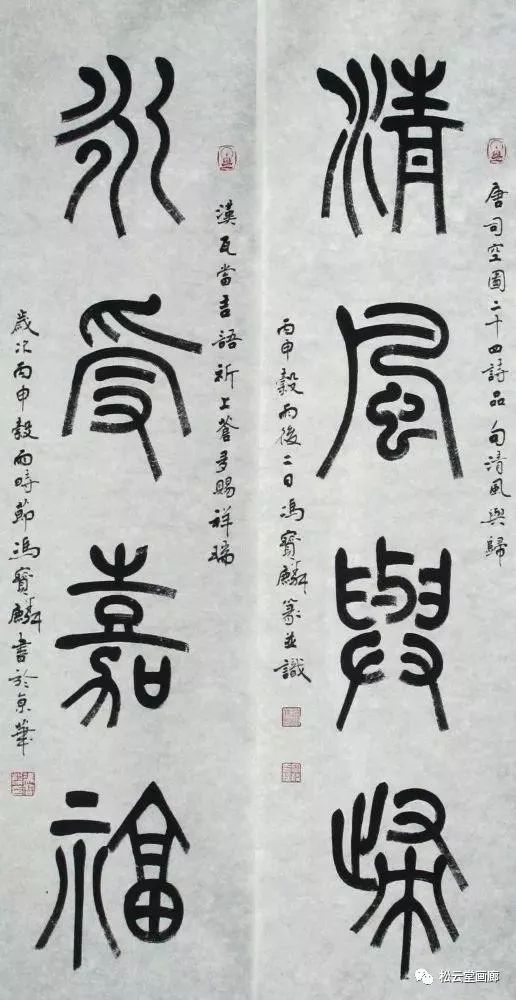 清風與歸
唐司空圖二十四詩品句清風與歸
丙申穀雨後二日馮寶麟篆並識
永受嘉福
漢瓦當吉語祈上蒼多賜祥瑞
歲次丙申穀雨時節馮寶麟書於京華
松云堂画廊